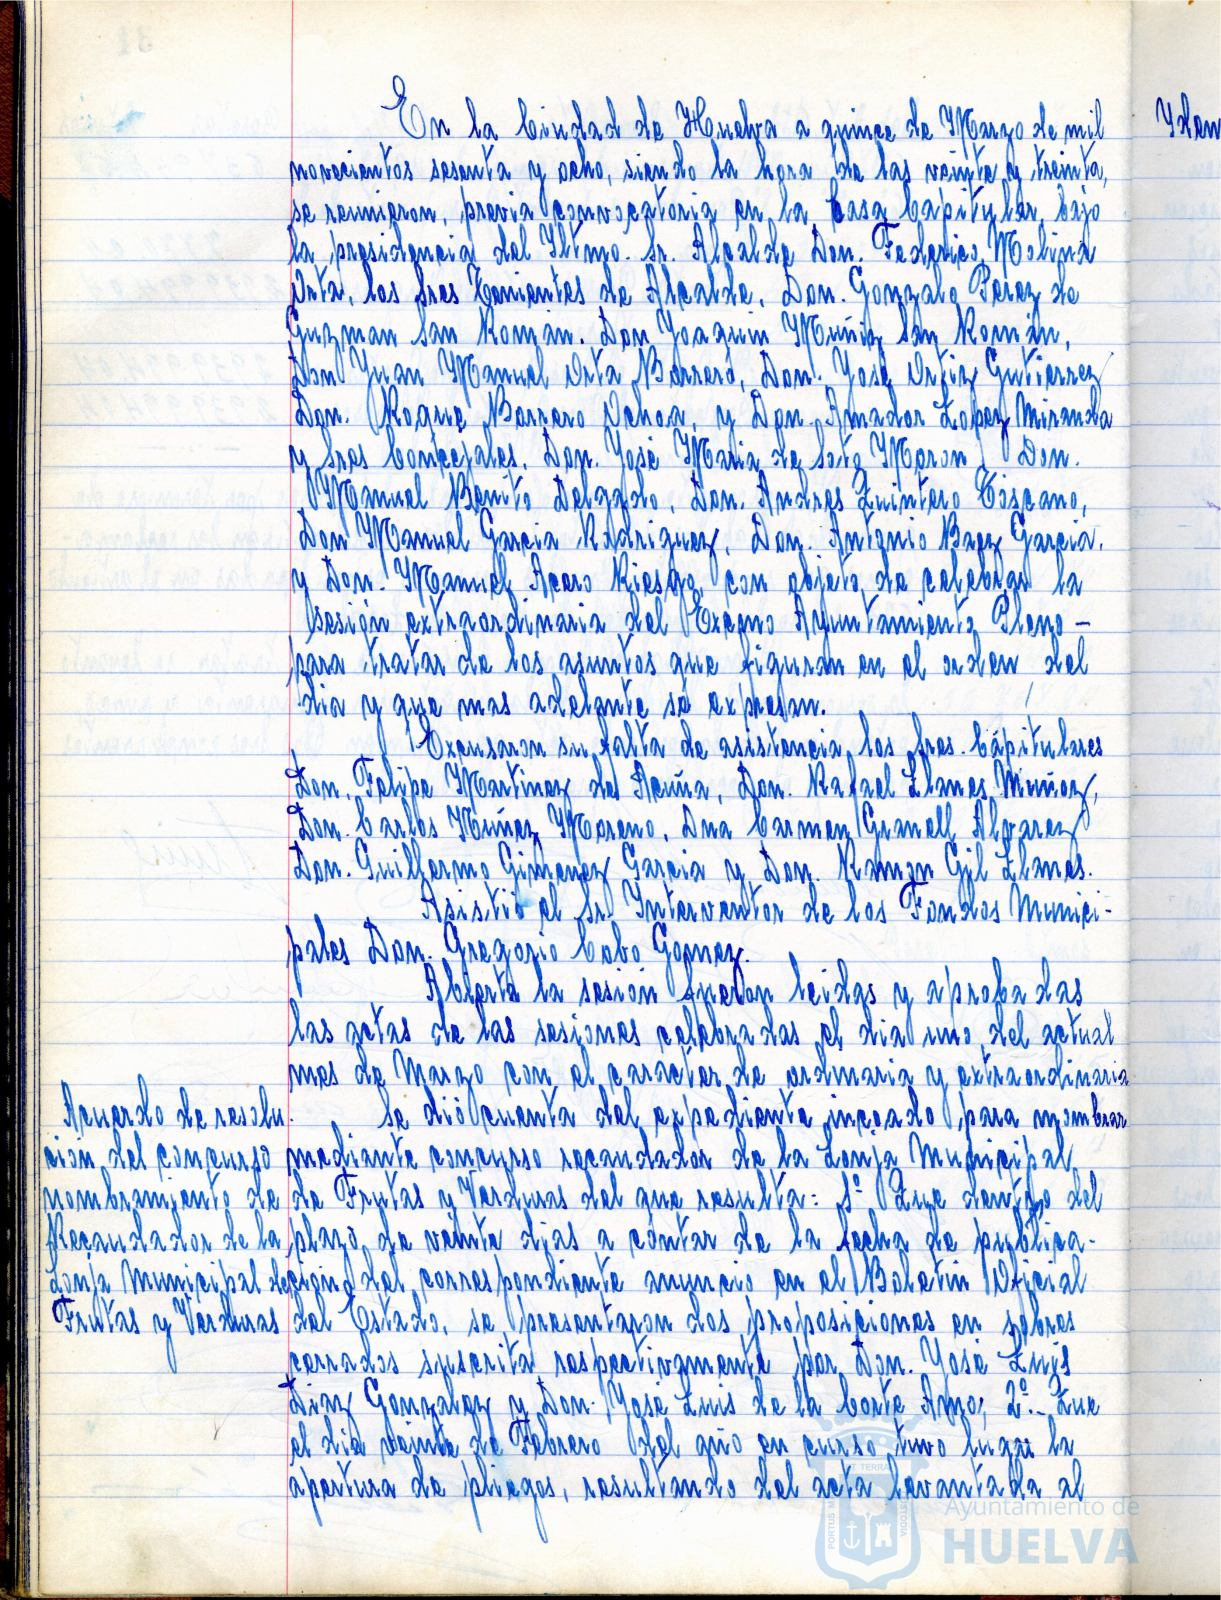 En la Ciudad de Huelva a quince de Marzo de mil
novecientos sesenta y ocho, siendo la hora de las veinte y treinta,
se reunieron, previa convocatoria en la Casa Capitular, bajo
la presidencia del Iltmo. Sr. Alcalde Don. Federico Molina
Orta, los Sres Tenientes de Alcalde, Don. Gonzalo Perez de
Guzman San Román. Don Joaquin Muñiz San Román,
Don Juan Manuel Orta Barrero, Don. José Ortiz Gutierrez
Don. Roque Barrero Ochoa, y Don. Amador Lopez Miranda
y Sres Concejales, Don. José Maria de Soto Moron, Don.
Manuel Benito Delgado, Don. Andres Quintero Toscano,
Don Manuel Garcia Rodriguez, Don. Antonio Baez Garcia.
y Don. Manuel Acero Riesgo, con objeto de celebrar la
sesión extraordinaria del Excmo Ayuntamiento Pleno -
para tratar de los asuntos que figuran en el orden del
dia y que mas adelante se expresan.
Excusaron su falta de asistencia los Sres. Capitulares
Don. Felipe Martinez de Acuña, Don. Rafael Llanes Muñoz,
Don. Carlos Nuñez Moreno, Dña Carmen Granell Alvarez
Don. Guillermo Gimenez Garcia y Don. Ramon Gil Llanes.
Asistió el Sr Interventor de los Fondos Munici-
pales Don. Gregorio Cabo Gomez.
Abierta la sesión fueron leidas y aprobadas
las actas de las sesiones celebradas el dia uno del actual
mes de Marzo con el carácter de ordinaria y extraordinaria.
Acuerdo de resolu
ción del concurso
nombramiento de
Recaudador de la
Lonja Municipal de
Frutas y Verduras
Se dió cuenta del expediente incoado para nombrar
mediante concurso recaudador de la Lonja Municipal
de Frutas y Verduras del que resulta: 1º Que dentro del
plazo de veinte dias a contar de la fecha de publica-
ción del correspondiente anuncio en el Boletin Oficial
del Estado, se presentaron dos proposiciones en sobres
cerrados suscrita respectivamente por Don. José Luis
Diaz Gonzalez y Don. José Luis de la Corte Amo; 2º.- Que
el dia veinte de Febrero del año en curso tuvo lugar la
apertura de pliegos, resultando del acta levantada al
Idem
Ayuntamiento de
HUELVA